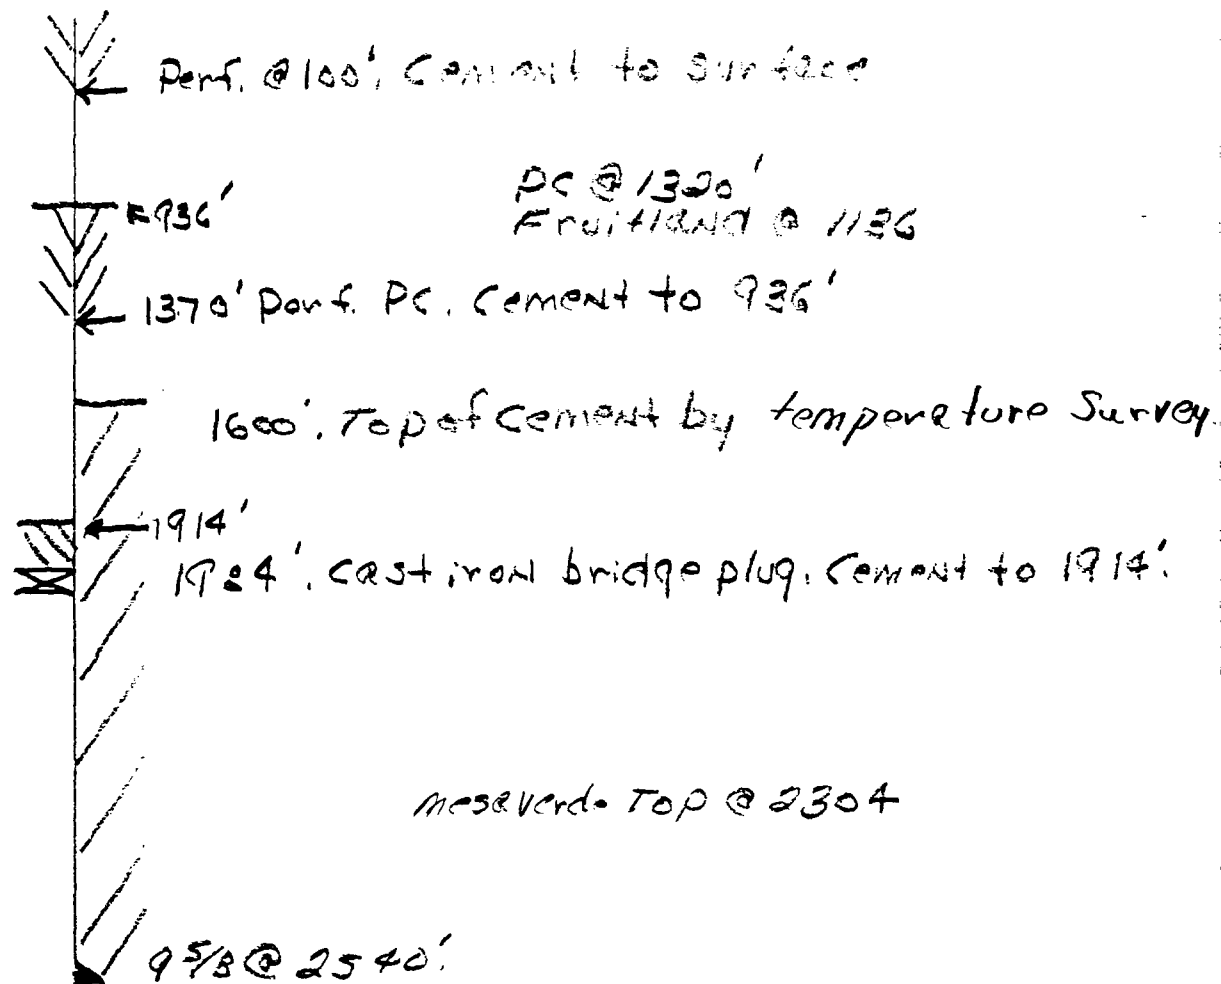 Perf. @ 100'. Cement to surface
936'
PC @ 1320'
Fruitland @ 1136
1370' Perf. PC. Cement to 936'
1600'. Top of Cement by temperature Survey.
1914'
1984'. Cast iron bridge plug. Cement to 1914'.
mesaverde Top @ 2304
9 5/8 @ 2540'.